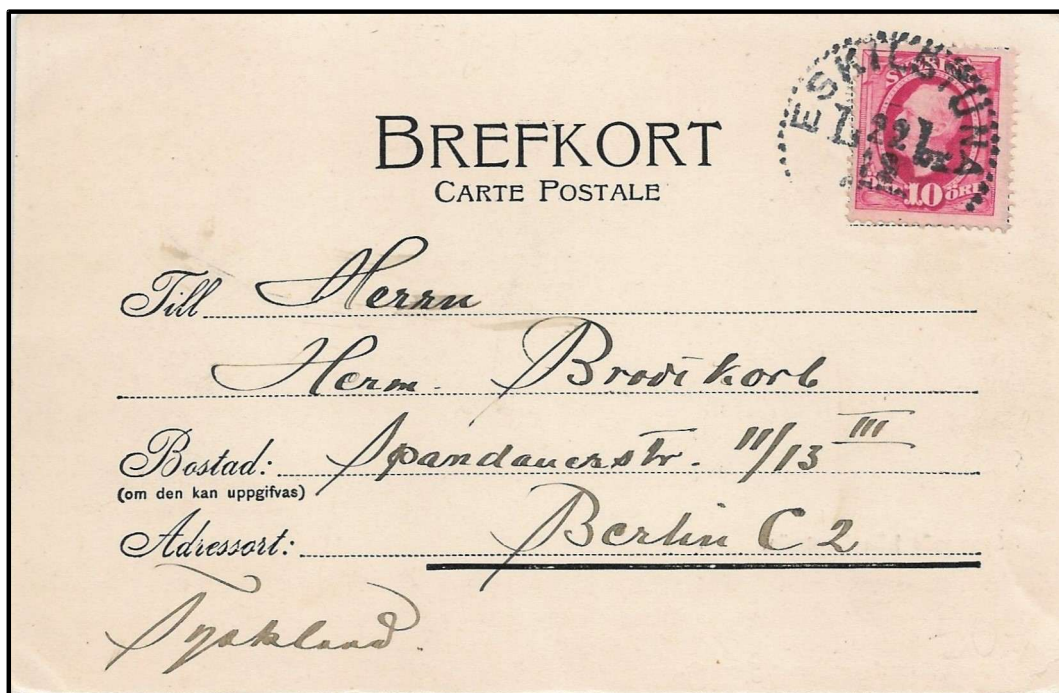 BREFKORT
CARTE POSTALE
ESKILSTUNA
SVERIGE
10 ÖRE
Till Herrn
Herm.
Bostad: Spandauerstr. 11/13 III
(om den kan uppgifvas)
Adressort: Berlin C 2
Tyskland.